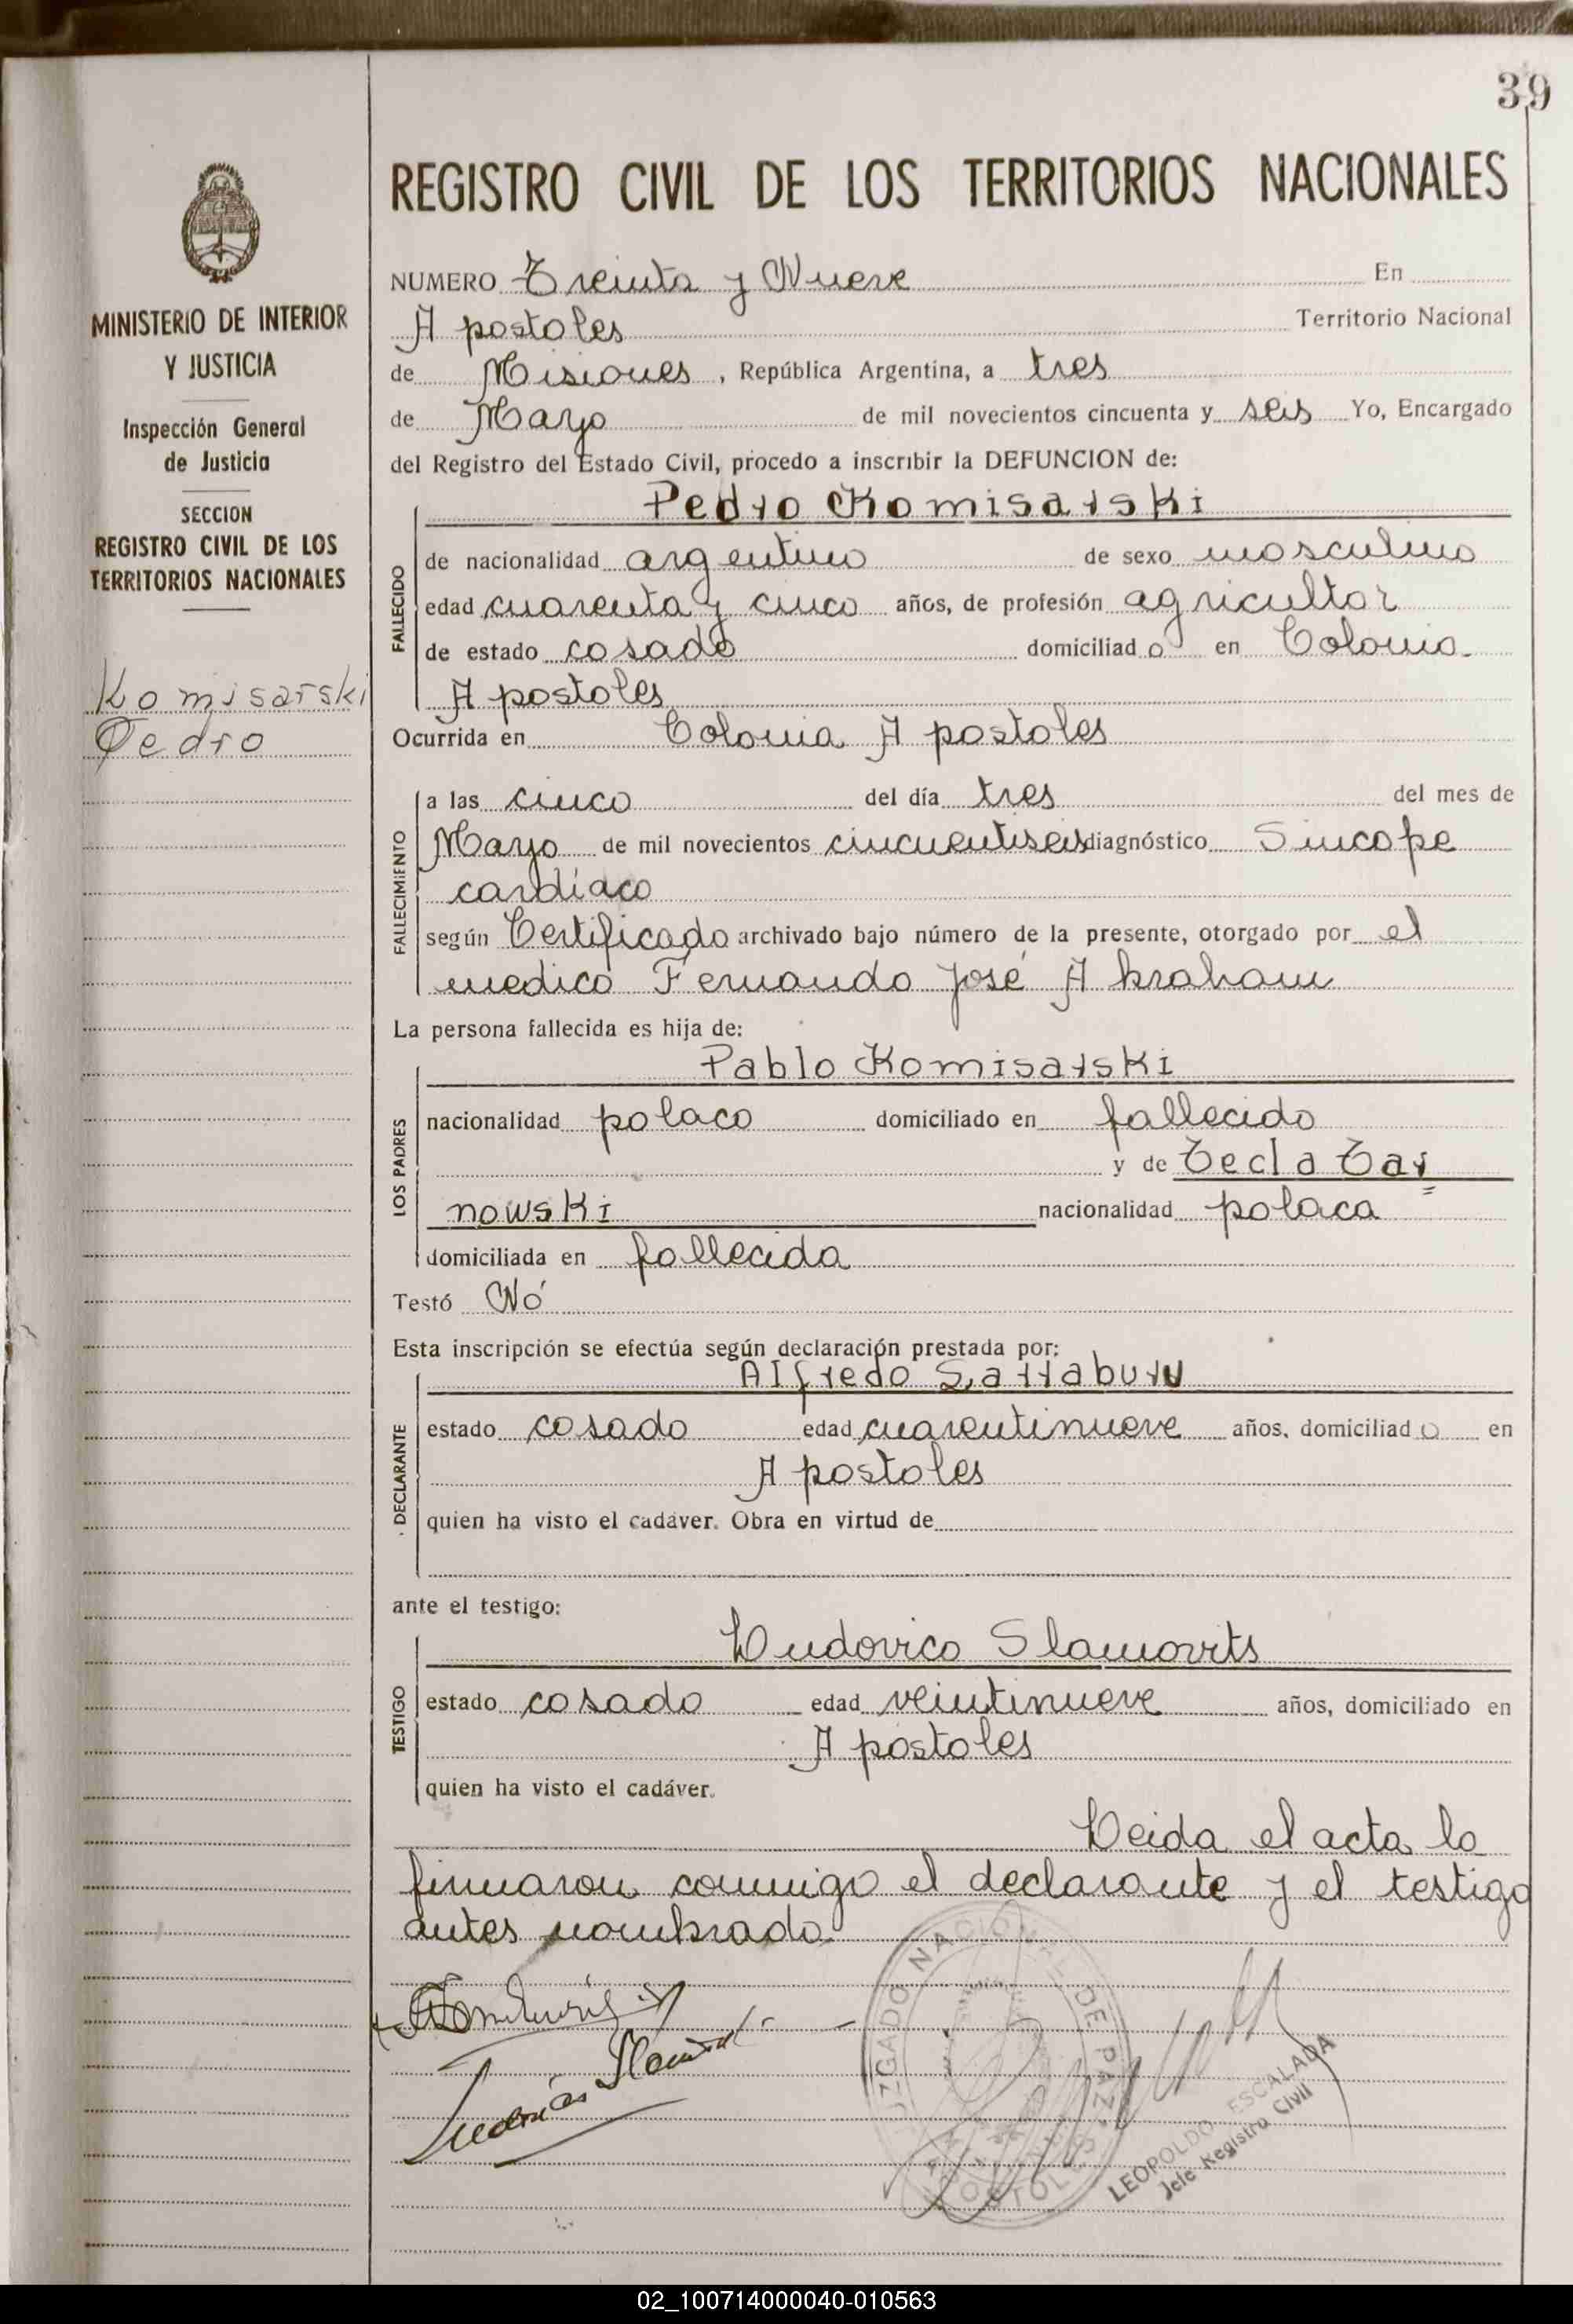 39
REGISTRO CIVIL DE LOS TERRITORIOS NACIONALES
MINISTERIO DE INTERIOR
Y JUSTICIA
Inspección General
de Justicia
SECCION
REGISTRO CIVIL DE LOS
TERRITORIOS NACIONALES
Komisarski
Pedro
NUMERO Treinta y Nueve En
Apostoles Territorio Nacional
de Misiones, República Argentina, a tres
de Mayo de mil novecientos cincuenta y seis Yo, Encargado
del Registro del Estado Civil, procedo a inscribir la DEFUNCION de:
Pedro Komisarski
FALLECIDO
de nacionalidad argentino de sexo masculino
edad cuarenta y cinco años, de profesión agricultor
de estado casado domiciliado en Colonia
Apostoles
Ocurrida en Colonia Apostoles
FALLECIMIENTO
a las cinco del día tres del mes de
Mayo de mil novecientos cincuentiseis diagnóstico Sincope
cardíaco
según Certificado archivado bajo número de la presente, otorgado por el
medico Fernando José Abraham
La persona fallecida es hija de:
Pablo Komisarski
LOS PADRES
nacionalidad polaco domiciliado en fallecido
y de Tecla Tar
nowski nacionalidad polaca
domiciliada en fallecida
Testó Nó
Esta inscripción se efectúa según declaración prestada por:
Alfredo Sarraburu
DECLARANTE
estado casado edad cuarentinueve años, domiciliado en
Apostoles
quien ha visto el cadáver. Obra en virtud de
ante el testigo:
Ludovico Slamovits
TESTIGO
estado casado edad veintinueve años, domiciliado en
Apostoles
quien ha visto el cadáver.
Leida el acta la
firmaron conmigo el declarante y el testigo
antes nombrado.
JUZGADO NACIONAL DE PAZ
APOSTOLES
LEOPOLDO ESCALADA
Jefe Registro Civil
02_100714000040-010563